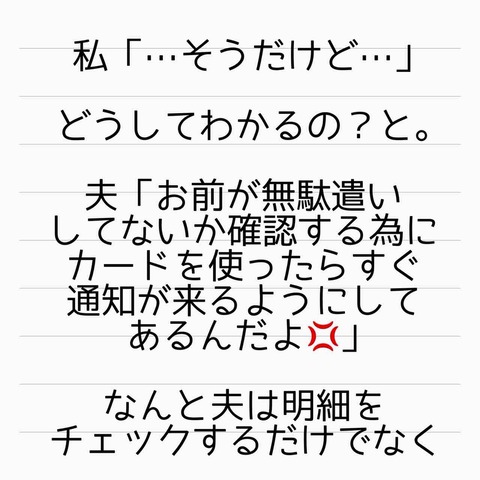 私「…そうだけど…」
どうしてわかるの？と。
夫「お前が無駄遣い
してないか確認する為に
カードを使ったらすぐ
通知が来るようにして
あるんだよ💢」
なんと夫は明細を
チェックするだけでなく